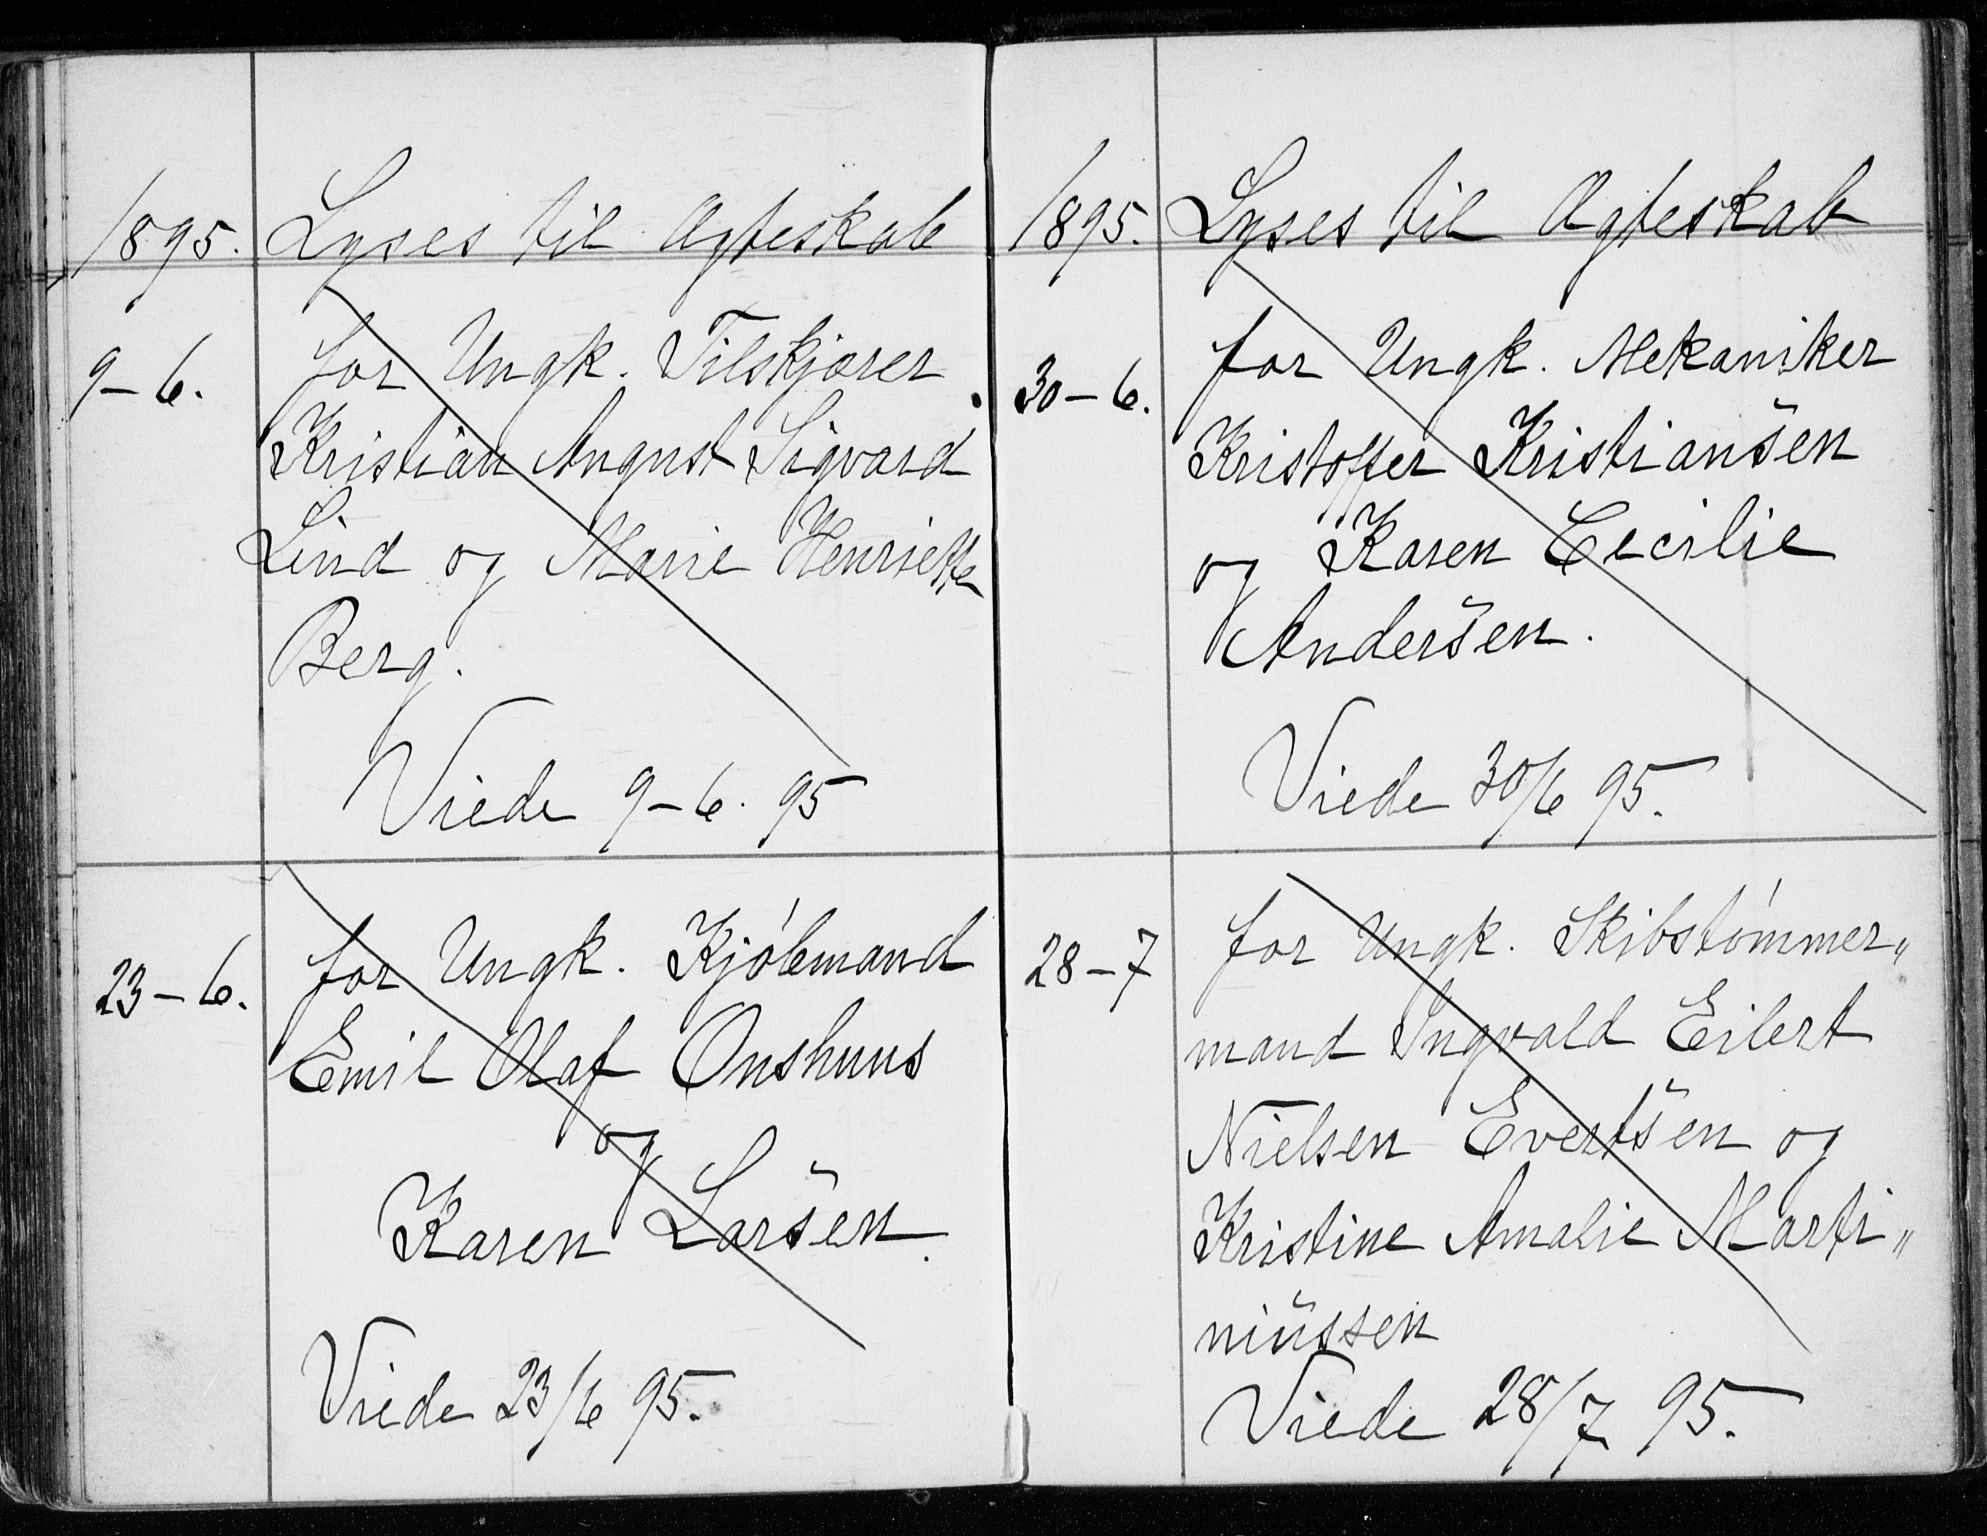 1895. Lyses til Ægteskab
9-6. for Ungk. Tilskjærer
Kristian August Sigvard
Lind og Marie Henriette
Berg.
Viede 9-6. 95
23-6. for Ungk. Kjøbmand
Emil Olaf Onshuus
og
Karen Larsen.
Viede 23/6 95.
1895. Lyses til Ægteskab
30-6. for Ungk. Mekaniker
Kristoffer Kristiansen
og Karen Cecilie
Andersen.
Viede 30/6 95.
28-7 for Ungk. Skibstømmer„
mand Ingvald Eilert
Nielsen Evertsen og
Kristine Amalie Marti„
niussen
Viede 28/7 95.